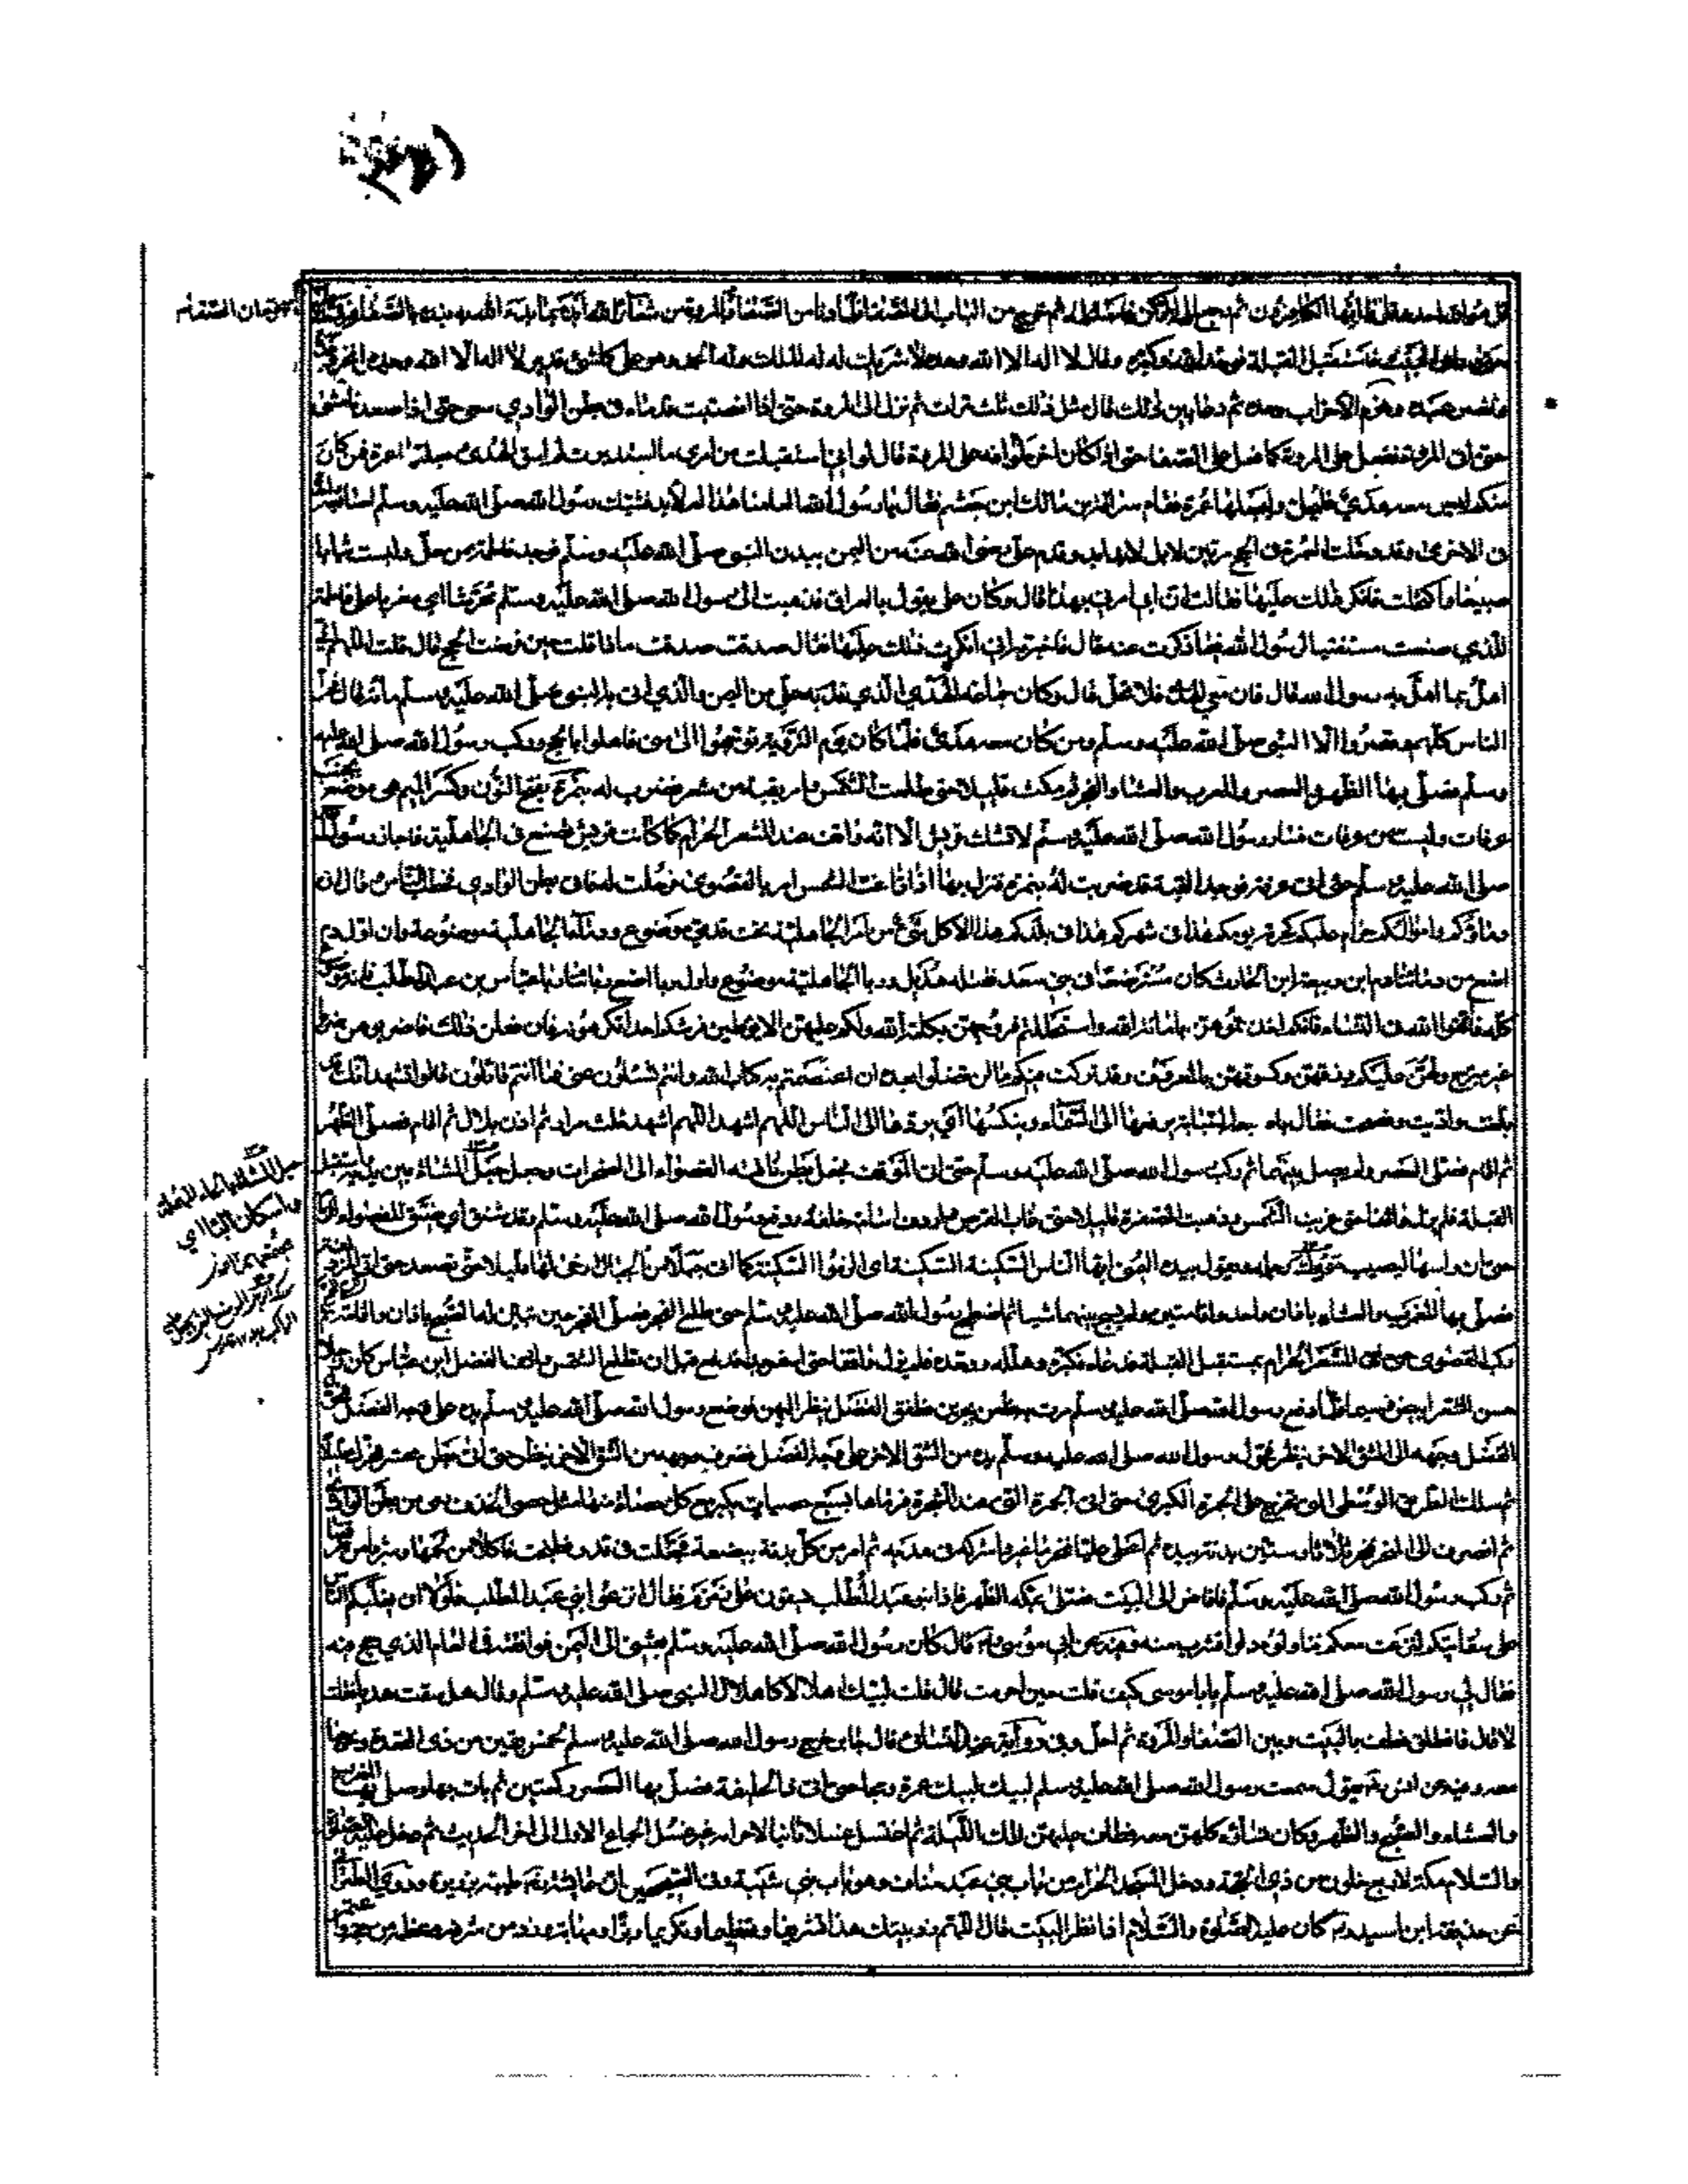 قل هو الله احد وقل يا ايها الكافرون ثم رجع الى الركن فاستلمه ثم خرج من الباب الى الصفا فلما دنا من الصفا قرأ ان الصفا والمروة من شعائر الله ابدأ بما بدأ الله به فبدء بالصفا فرقى
حتى رأى البيت فاستقبل القبلة فوحد الله وكبره وقال لا اله الا الله وحده لا شريك له له الملك وله الحمد وهو على كل شئ قدير لا اله الا الله وحده انجز وعده
ونصر عبده وهزم الاحزاب وحده ثم دعا بين ذلك قال مثل ذلك ثلث مرات ثم نزل الى المروة حتى اذا انصبت قدماه في بطن الوادي سعى حتى اذا صعدنا مشى
حتى اتى المروة ففعل على المروة كما فعل على الصفا حتى اذا كان اخر طوافه على المروة قال لو اني استقبلت من امري ما استدبرت لم اسق الهدى وجعلتها عمرة فمن كان
منكم ليس معه هدي فليحل وليجعلها عمرة فقام سراقة بن مالك ابن جعشم فقال يا رسول الله العامنا هذا ام لابد فشبك رسول الله صلى الله عليه وسلم اصابعه
في الاخرى وقد دخلت العمرة في الحج مرتين لا بل لابد ابد وقدم علي رضي الله عنه من اليمن ببدن النبي صلى الله عليه وسلم فوجد فاطمة ممن حل ولبست ثيابا
صبيغا واكتحلت فانكر ذلك عليها فقالت ان ابي امرني بهذا قال وكان علي يقول بالعراق فذهبت الى رسول الله صلى الله عليه وسلم محرشا اي مغريا على فاطمة
للذي صنعت مستفتيا لرسول الله فيما ذكرت عنه قال فاخبرته اني انكرت ذلك عليها فقال صدقت صدقت ماذا قلت حين فرضت الحج قال قلت اللهم اني
اهل بما اهل به رسول الله قال فان معي الهدي فلا تحل قال وكان جماعة الهدي الذي قدم به علي من اليمن والذي اتى به النبي صلى الله عليه وسلم مائة قال فحل
الناس كلهم وقصروا الا النبي صلى الله عليه وسلم ومن كان معه هدي فلما كان يوم التروية توجهوا الى منى فاهلوا بالحج وركب رسول الله صلى الله عليه
وسلم فصلى بها الظهر والعصر والمغرب والعشاء والفجر ثم مكث قليلا حتى طلعت الشمس وامر بقبة من شعر فضرب له بنمرة بفتح النون وكسر الميم هي موضع
عرفات وليست من عرفات فسار رسول الله صلى الله عليه وسلم لا تشك قريش الا انه واقف عند المشعر الحرام كما كانت قريش تصنع في الجاهلية فاجاز رسول الله
صلى الله عليه وسلم حتى اتى عرفة فوجد القبة قد ضربت له بنمرة فنزل بها اذا زاغت الشمس امر بالقصوى فرحلت له فاتى بطن الوادي فخطب الناس فقال ان
دماؤكم واموالكم حرام عليكم كحرمة يومكم هذا في شهركم هذا في بلدكم هذا الا كل شئ من امر الجاهلية تحت قدمي موضوع ودماء الجاهلية موضوعة وان اول دم
اضع من دمائنا دم ابن ربيعة ابن الحارث كان مسترضعا في بني سعد فقتله هذيل وربا الجاهلية موضوع واول ربا اضع ربانا ربا عباس بن عبد المطلب فانه موضوع
كله فاتقوا الله في النساء فانكم اخذتموهن بامانة الله واستحللتم فروجهن بكلمة الله ولكم عليهن الا يوطين فرشكم احدا تكرهونه فان فعلن ذلك فاضربوهن ضربا
غير مبرح ولهن عليكم رزقهن وكسوتهن بالمعروف وقد تركت فيكم ما لن تضلوا بعده ان اعتصمتم به كتاب الله وانتم تسئلون عني فما انتم قائلون قالوا نشهد انك
بلغت واديت ونصحت فقال باصبعه السبابة يرفعها الى السماء وينكسها اي يردها الى الناس اللهم اشهد اللهم اشهد ثلث مرات ثم اذن بلال ثم اقام فصلى الظهر
ثم اقام فصلى العصر ولم يصل بينهما ثم ركب رسول الله صلى الله عليه وسلم حتى اتى الموقف فجعل بطن ناقته القصواء الى الصخرات وجعل حبل المشاة بين يديه واستقبل
القبلة فلم يزل واقفا حتى غربت الشمس وذهبت الصفرة قليلا حتى غاب القرص واردف اسامة خلفه ودفع رسول الله صلى الله عليه وسلم وقد شنق اي ضيق للقصواء
حتى ان راسها ليصيب مورك رحله ويقول بيده اليمنى ايها الناس السكينة السكينة اي الزموا السكينة كلما اتى جبلا من الجبال ارخى لها قليلا حتى تصعد حتى اتى المزدلفة
فصلى بها المغرب والعشاء باذان واحد واقامتين ولم يسبح بينهما شيئا ثم اضطجع رسول الله صلى الله عليه وسلم حتى طلع الفجر فصلى الفجر حين تبين له الصبح باذان واقامة
ركب القصوى حتى اتى المشعر الحرام فاستقبل القبلة فدعاه وكبره وهلله ووحده فلم يزل واقفا حتى اسفر جدا فدفع قبل ان تطلع الشمس واردف الفضل ابن عباس كان رجلا
حسن الشعر ابيض وسيما فلما دفع رسول الله صلى الله عليه وسلم مرت به ظعن يجرين فطفق الفضل ينظر اليهن فوضع رسول الله صلى الله عليه وسلم يده على وجه الفضل
الفضل وجهه الى الشق الاخر ينظر فحول رسول الله صلى الله عليه وسلم يده من الشق الاخر على وجه الفضل فصرف وجهه من الشق الاخر ينظر حتى اتى بطن محسر فحرك قليلا
ثم سلك الطريق الوسطى التي تخرج على الجمرة الكبرى حتى اتى الجمرة التي عند الشجرة فرماها بسبع حصيات يكبر مع كل حصاة منها مثل حصى الخذف رمى من بطن الوادي
ثم انصرف الى المنحر فنحر ثلاثا وستين بدنة بيده ثم اعطى عليا فنحر ما غبر واشركه في هديه ثم امر من كل بدنة ببضعة فجعلت في قدر فطبخت فاكلا من لحمها وشربا من مرقها
ثم ركب رسول الله صلى الله عليه وسلم فافاض الى البيت فصلى بمكة الظهر فاتى بنو عبد المطلب يسقون على زمزم فقال انزعوا بني عبد المطلب فلولا ان يغلبكم الناس
على سقايتكم لنزعت معكم فناولوه دلوا فشرب منه وفيه عن ابي موسى قال كان رسول الله صلى الله عليه وسلم بعثني الى اليمن فوافقته في العام الذي حج فيه
فقال لي رسول الله صلى الله عليه وسلم يا ابا موسى كيف قلت حين احرمت قال قلت لبيك اهلالا كاهلال النبي صلى الله عليه وسلم وقال هل سقت هديا فقلت
لا قال فانطلق فطف بالبيت وبين الصفا والمروة ثم احل وفي رواية عند النسائي قال جابر خرج رسول الله صلى الله عليه وسلم لخمس بقين من ذي القعدة وخرجنا
معه وفيه عن انس يقول سمعت رسول الله صلى الله عليه وسلم لبيك لبيك عمرة وحجا حتى اتى ذا الحليفة فصلى بها العصر ركعتين ثم بات بها وصلى بها المغرب
والعشاء والصبح والظهر وكان نسائه كلهن معه فطاف عليهن تلك الليلة ثم اغتسل غسلا ثانيا لاحرامه غير غسل الجماع الاول الى اخر الحديث ثم دخل عليه الصلوة
والسلام مكة لاربع خلون من ذي الحجة ودخل المسجد الحرام من باب بني عبد مناف وهو باب بني شيبة وفي الصحيحين ان عائشة وروى الطبراني
عن حذيفة ابن اسيد كان عليه الصلوة والسلام اذا نظر البيت قال اللهم زد بيتك هذا تشريفا وتعظيما وتكريما وبرا ومهابة وزد من شرفه وعظمه ممن حجه